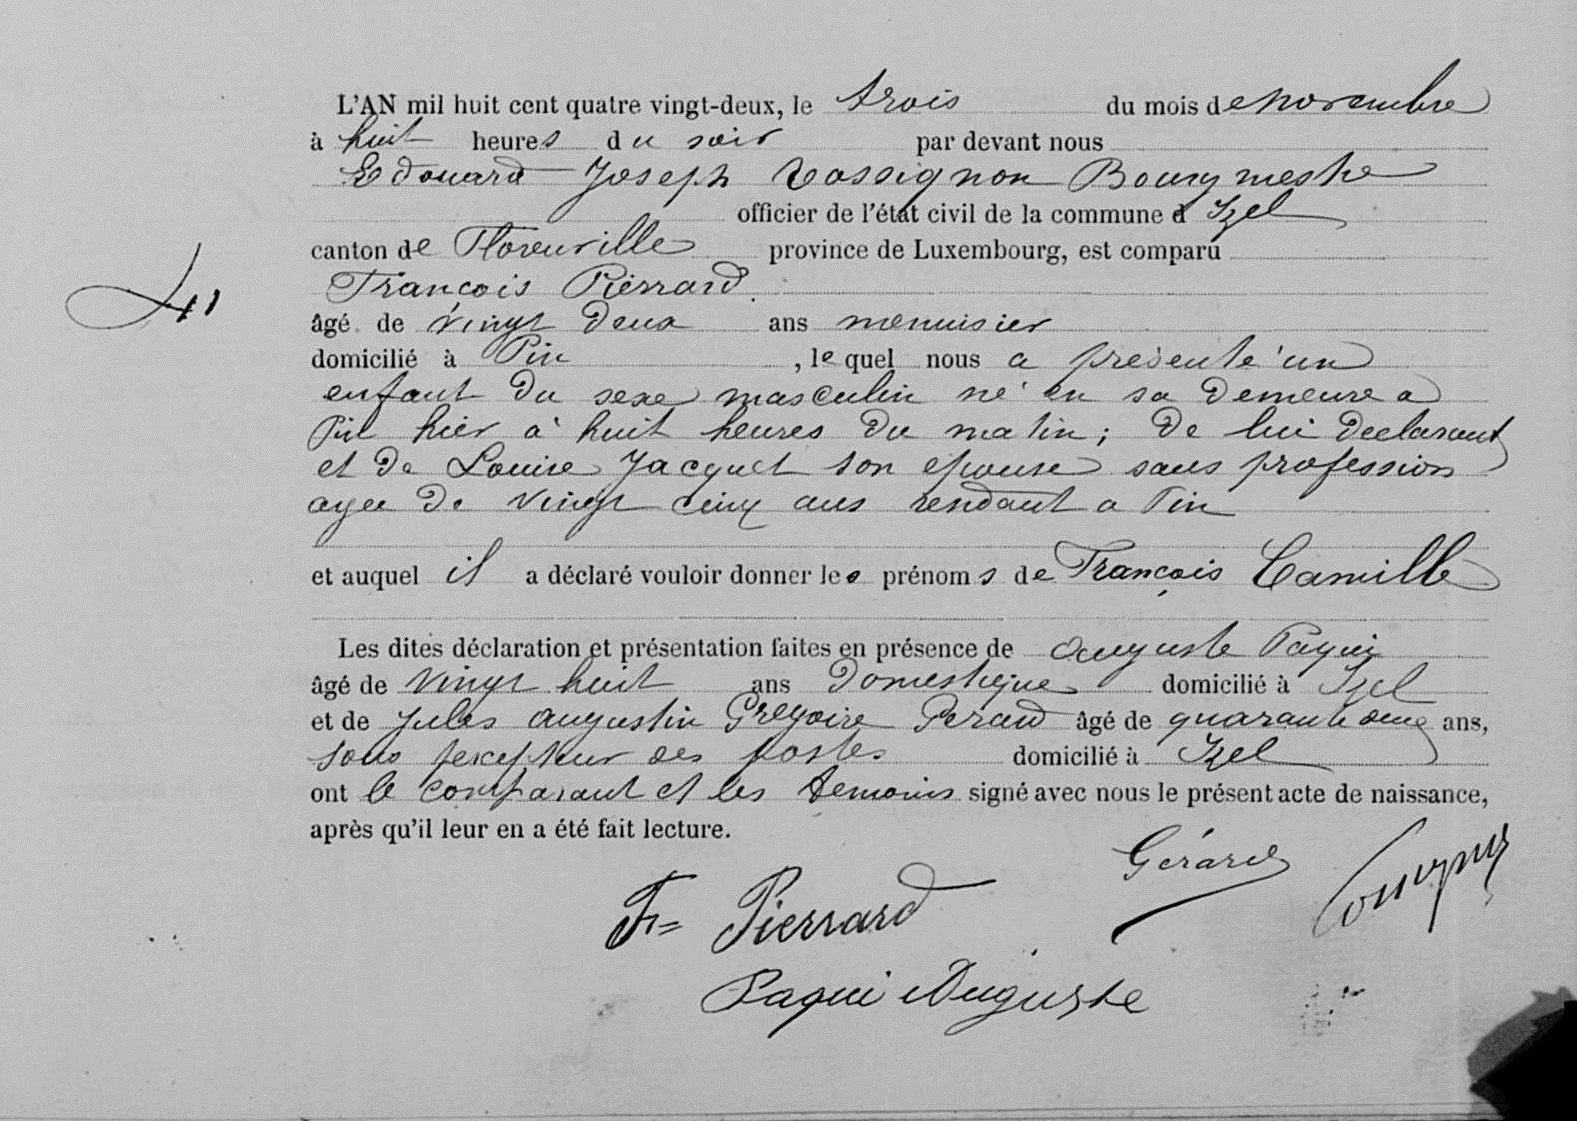 L'AN mil huit cent quatre vingt-deux, le trois du mois de novembre
à huit heures du soir par devant nous
Edouard Joseph Rossignon Bourgmestre
officier de l'état civil de la commune d Izel
canton de Florenville province de Luxembourg, est comparu
François Pierrard
âgé de vingt deux ans menuisier
domicilié à Pin, lequel nous a présenté un
enfant du sexe masculin né en sa demeure a
Pin hier à huit heures du matin; de lui declarant
et de Louise Jacquet son epouse sans profession
agee de vingt cinq ans rendant a Pin
et auquel il a déclaré vouloir donner les prénoms de François Camille
Les dites déclaration et présentation faites en présence de Auguste Paqui
âgé de vingt huit ans Domestique domicilié à Izel
et de Jules Augustin Grégoire âgé de quarante deux ans,
sous percepteur des postes domicilié à Izel
ont le comparant et les temoins signé avec nous le présent acte de naissance,
après qu'il leur en a été fait lecture.
Gérard
Fr= Pierrard
Paqui Auguste